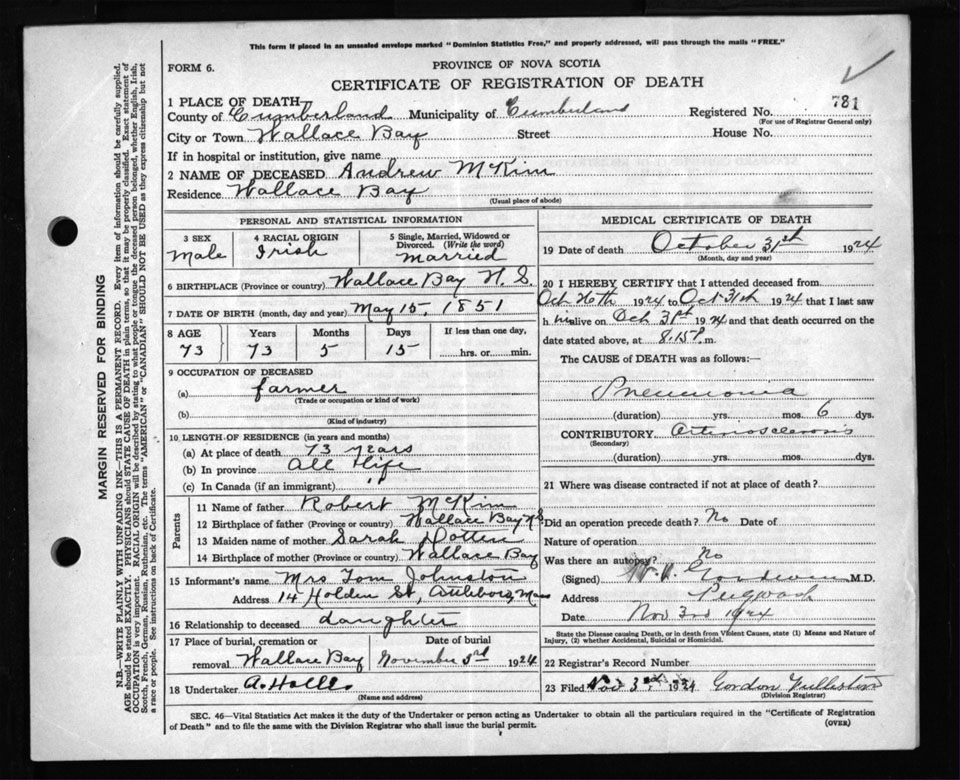 This form if placed in an unsealed envelope marked "Dominion Statistics Free," and properly addressed, will pass through the mails "FREE."
FORM 6.
PROVINCE OF NOVA SCOTIA
CERTIFICATE OF REGISTRATION OF DEATH
1 PLACE OF DEATH
County of Cumberland Municipality of Cumberland Registered No. 781
(For use of Registrar General only)
City or Town Wallace Bay Street House No.
If in hospital or institution, give name
2 NAME OF DECEASED Andrew McKim
Residence Wallace Bay
(Usual place of abode)
PERSONAL AND STATISTICAL INFORMATION
3 SEX 4 RACIAL ORIGIN 5 Single, Married, Widowed or Divorced. (Write the word)
Male Irish Married
6 BIRTHPLACE (Province or country) Wallace Bay N.S.
7 DATE OF BIRTH (month, day and year) May 15, 1851
8 AGE Years Months Days If less than one day,
73 73 5 15 hrs. or min.
9 OCCUPATION OF DECEASED
(a) farmer
(Trade or occupation or kind of work)
(b)
(Kind of industry)
10 LENGTH OF RESIDENCE (in years and months)
(a) At place of death 73 years
(b) In province All Life
(c) In Canada (if an immigrant) "
Parents
11 Name of father Robert McKim
12 Birthplace of father (Province or country) Wallace Bay N.S
13 Maiden name of mother Sarah
14 Birthplace of mother (Province or country) Wallace Bay
15 Informant's name Mrs Tom Johnston
Address 14 Holden St, Attleboro, Mass
16 Relationship to deceased daughter
17 Place of burial, cremation or Date of burial
removal Wallace Bay November 3rd 1924
18 Undertaker
(Name and address)
MEDICAL CERTIFICATE OF DEATH
19 Date of death October 31st 1924
(Month, day and year)
20 I HEREBY CERTIFY that I attended deceased from
Oct 26th 1924 to Oct 31th 1924 that I last saw
h im alive on Oct 31st 1924 and that death occurred on the
date stated above, at 8.15 P. m.
The CAUSE of DEATH was as follows:
Pneumonia
(duration) yrs. mos. 6 dys.
CONTRIBUTORY Arteriosclerosis
(Secondary)
(duration) yrs. mos. dys.
21 Where was disease contracted if not at place of death?
Did an operation precede death? No Date of
Nature of operation
Was there an autopsy? No
(Signed) M.D.
Address Pugwash
Date Nov 3rd 1924
State the Disease causing Death, or in death from Violent Causes, state (1) Means and Nature of
Injury, (2) whether Accidental, Suicidal or Homicidal.
22 Registrar's Record Number
23 Filed Nov 3rd 1924 Gordon
(Division Registrar)
SEC. 46—Vital Statistics Act makes it the duty of the Undertaker or person acting as Undertaker to obtain all the particulars required in the "Certificate of Registration
of Death" and to file the same with the Division Registrar who shall issue the burial permit. (OVER)
MARGIN RESERVED FOR BINDING
N.B.—WRITE PLAINLY WITH UNFADING INK—THIS IS A PERMANENT RECORD. Every item of information should be carefully supplied.
AGE should be stated EXACTLY. PHYSICIANS should STATE CAUSE OF DEATH in plain terms, so that it may be properly classified. Exact statement of
OCCUPATION is very important. RACIAL ORIGIN will be described by stating to what people or tongue the deceased person belonged, whether English, Irish,
Scotch, French, German, Russian, Ruthenian, etc. The terms "AMERICAN" or "CANADIAN" SHOULD NOT BE USED as they express citizenship but not
a race or people. See instructions on back of Certificate.